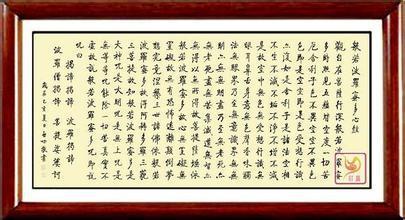 般若波羅蜜多心經
觀自在菩薩行深般若波羅蜜
多時照見五蘊皆空度一切苦
厄舍利子色不異空空不異色
色即是空空即是色受想行識
亦復如是舍利子是諸法空相
不生不滅不垢不淨不增不減
是故空中無色無受想行識無
眼耳鼻舌身意無色聲香味觸
法無眼界乃至無意識界無無
明亦無無明盡乃至無老死亦
無老死盡無苦集滅道無智亦
無得以無所得故菩提薩埵依
般若波羅蜜多故心無罣礙無
罣礙故無有恐怖遠離顛倒夢
想究竟涅槃三世諸佛依般若
波羅蜜多故得阿耨多羅三藐
三菩提故知般若波羅蜜多是
大神咒是大明咒是無上咒是
無等等咒能除一切苦真實不
虛故說般若波羅蜜多咒即說
咒曰
揭諦揭諦 波羅揭諦
波羅僧揭諦 菩提娑婆訶